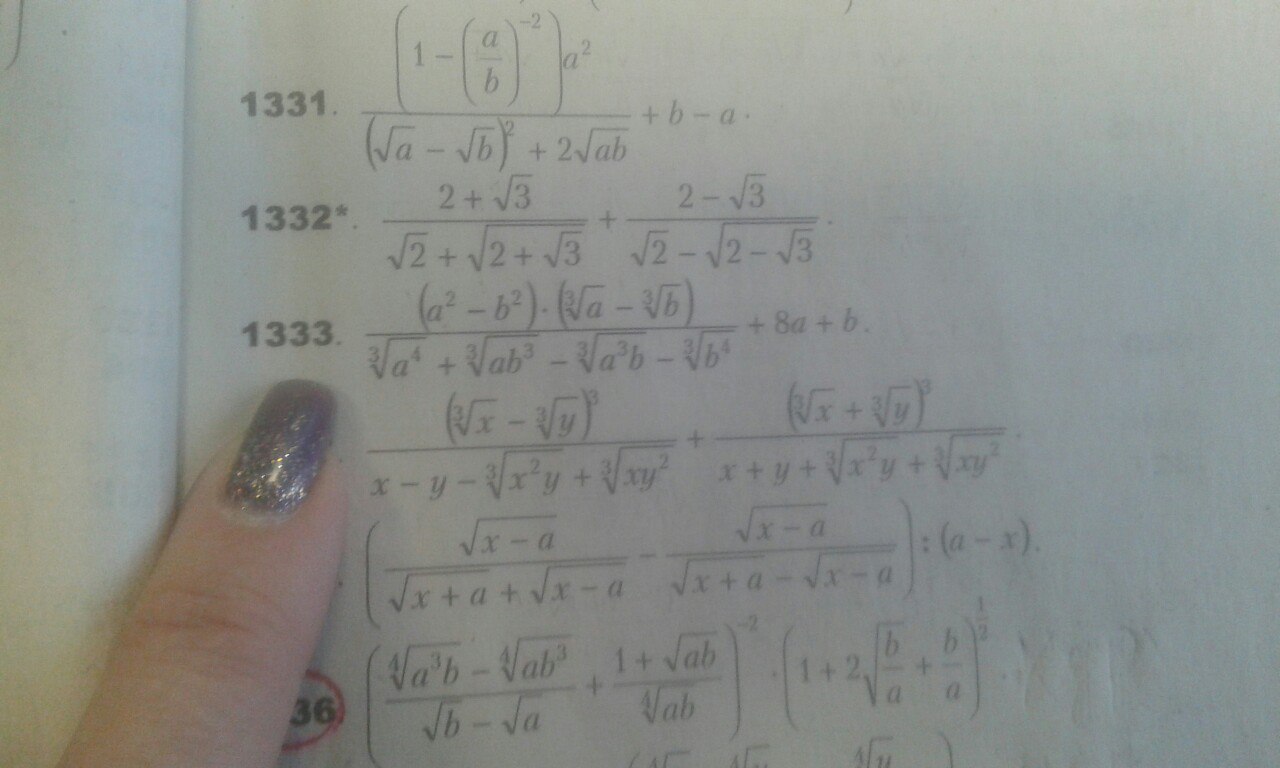 1331. \frac{\left(1-\left(\frac{a}{b}\right)^{-2}\right)a^2}{\left(\sqrt{a}-\sqrt{b}\right)^2+2\sqrt{ab}}+b-a.
1332*. \frac{2+\sqrt{3}}{\sqrt{2}+\sqrt{2+\sqrt{3}}}+\frac{2-\sqrt{3}}{\sqrt{2}-\sqrt{2-\sqrt{3}}}.
1333. \frac{(a^2-b^2)\cdot(\sqrt[3]{a}-\sqrt[3]{b})}{\sqrt[3]{a^4}+\sqrt[3]{ab^3}-\sqrt[3]{a^3b}-\sqrt[3]{b^4}}+8a+b.
\frac{(\sqrt[3]{x}-\sqrt[3]{y})^3}{x-y-\sqrt[3]{x^2y}+\sqrt[3]{xy^2}}+\frac{(\sqrt[3]{x}+\sqrt[3]{y})^3}{x+y+\sqrt[3]{x^2y}+\sqrt[3]{xy^2}}.
. \left(\frac{\sqrt{x-a}}{\sqrt{x+a}+\sqrt{x-a}}-\frac{\sqrt{x-a}}{\sqrt{x+a}-\sqrt{x-a}}\right):(a-x).
36 \left(\frac{\sqrt[4]{a^3b}-\sqrt[4]{ab^3}}{\sqrt{b}-\sqrt{a}}+\frac{1+\sqrt{ab}}{\sqrt[4]{ab}}\right)^{-2}\cdot\left(1+2\sqrt{\frac{b}{a}}+\frac{b}{a}\right)^{\frac{1}{2}}.